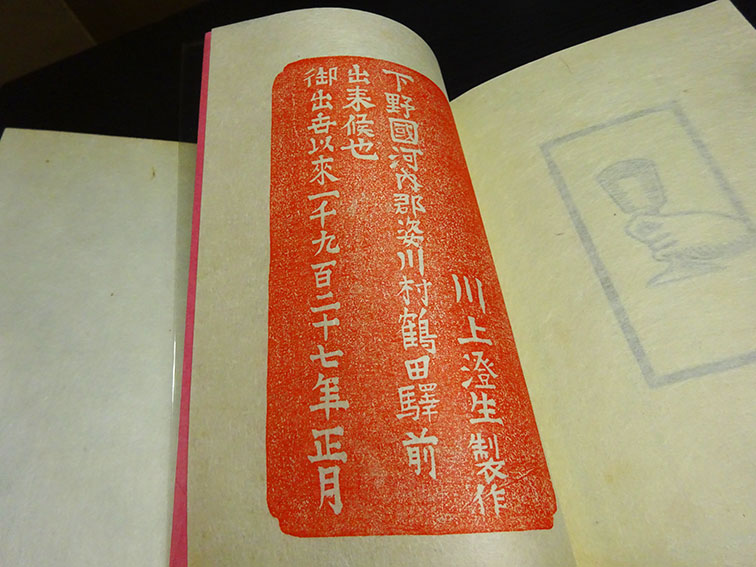 川上澄生製作
下野國河內郡姿川村鶴田驛前
出来候也
御出世以來一千九百二十七年正月